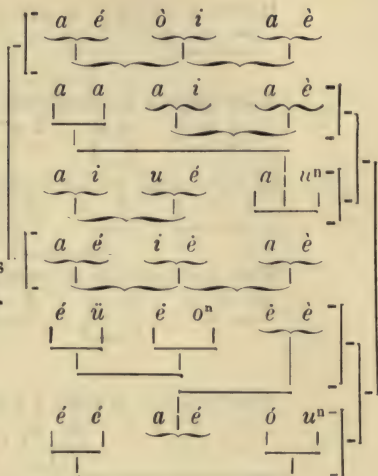 a é ò i a è
a a a i a è
a i u é a uⁿ
a é i è a è
s
é ü é oⁿ è è
é é a é ó uⁿ